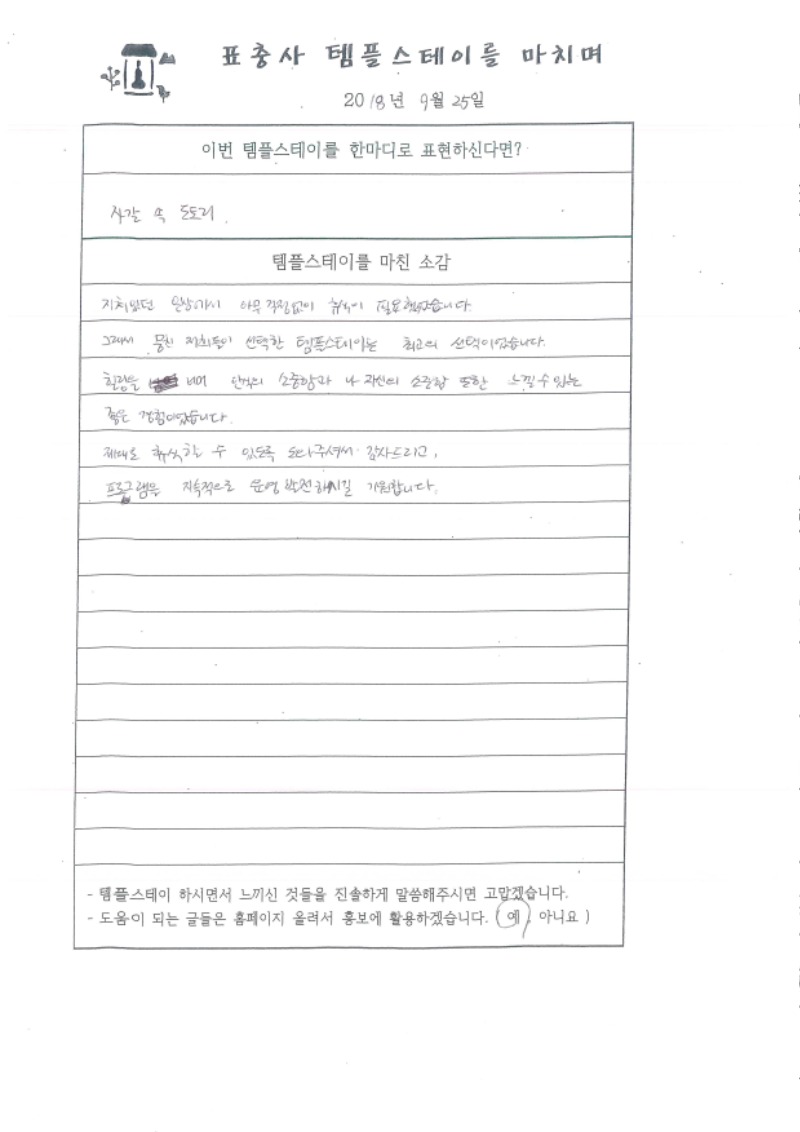 표충사 템플스테이를 마치며
2018년 9월 25일
이번 템플스테이를 한마디로 표현하신다면?
자갈 속 도토리.
템플스테이를 마친 소감
지쳐있던 일상에서 아무 걱정없이 휴식이 필요했었습니다.
그래서 뭉친 저희들이 선택한 템플스테이는 최고의 선택이었습니다.
힐링을 넘어 단체의 소중함과 나 자신의 소중함 또한 느낄 수 있는
좋은 경험이었습니다.
제대로 휴식할 수 있도록 도와주셔서 감사드리고,
프로그램을 지속적으로 운영 발전하시길 기원합니다.
- 템플스테이 하시면서 느끼신 것들을 진솔하게 말씀해주시면 고맙겠습니다.
- 도움이 되는 글들은 홈페이지 올려서 홍보에 활용하겠습니다. ( 예 아니요 )